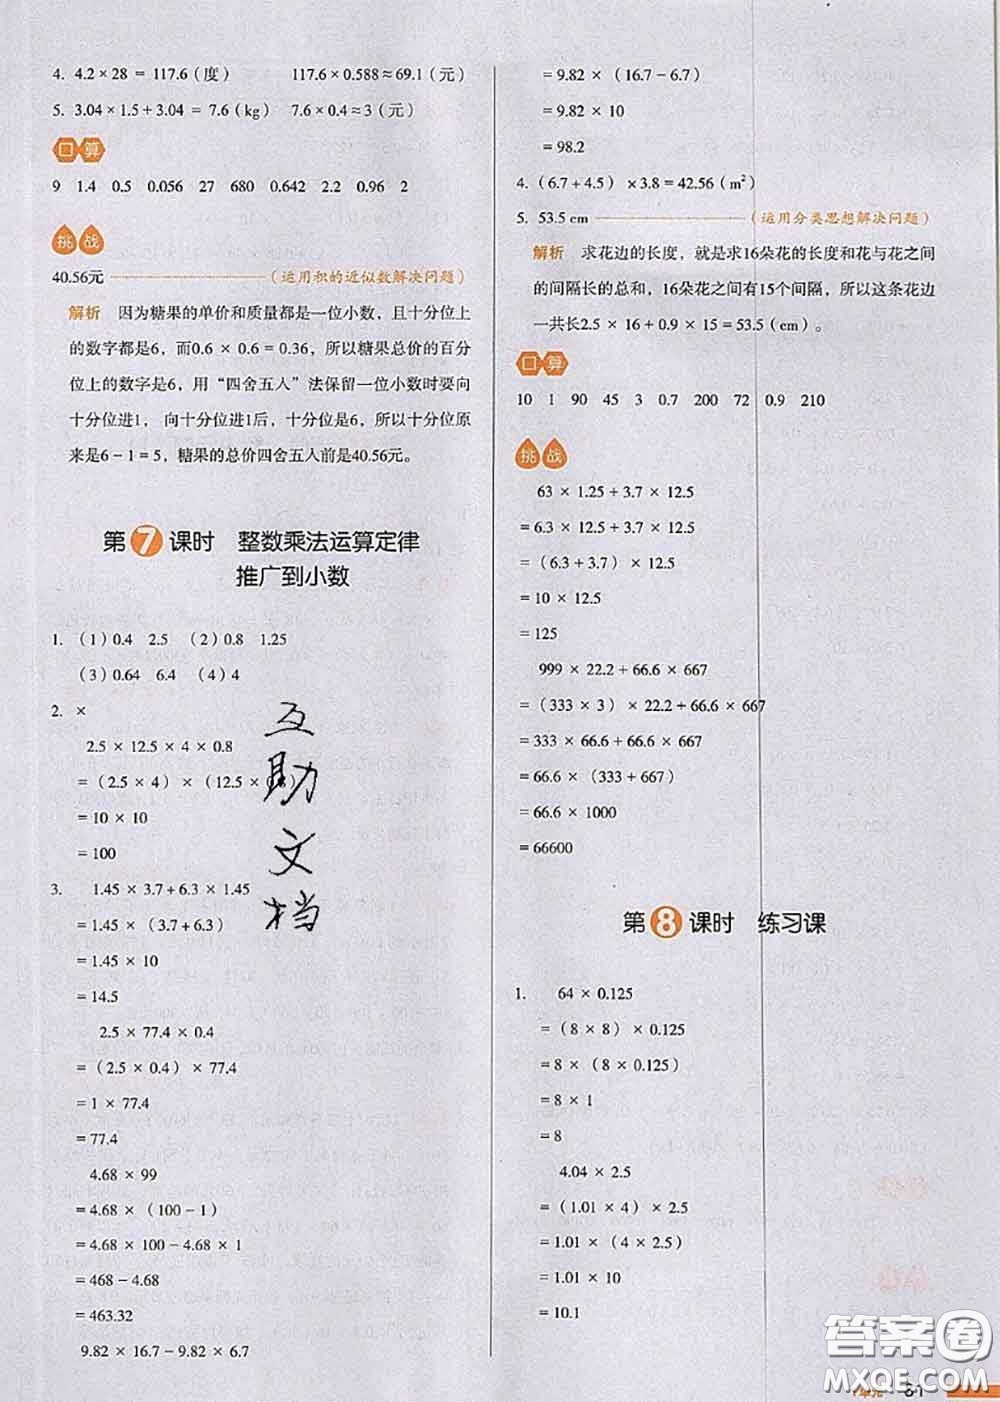 4. 4.2 × 28 = 117.6（度） 117.6 × 0.588 ≈ 69.1（元）
5. 3.04 × 1.5 + 3.04 = 7.6（kg） 7.6 × 0.4 ≈ 3（元）
口算
9 1.4 0.5 0.056 27 680 0.642 2.2 0.96 2
挑战
40.56元 （运用积的近似数解决问题）
解析 因为糖果的单价和质量都是一位小数，且十分位上
的数字都是6，而0.6 × 0.6 = 0.36，所以糖果总价的百分
位上的数字是6，用“四舍五人”法保留一位小数时要向
十分位进1， 向十分位进1后，十分位是6，所以十分位原
来是6 − 1 = 5，糖果的总价四舍五人前是40.56元。
第7课时 整数乘法运算定律
推广到小数
1. （1）0.4 2.5 （2）0.8 1.25
（3）0.64 6.4 （4）4
2. ×
2.5 × 12.5 × 4 × 0.8
=（2.5 × 4）×（12.5 ×
= 10 × 10
= 100
3. 1.45 × 3.7 + 6.3 × 1.45
= 1.45 ×（3.7 + 6.3）
= 1.45 × 10
= 14.5
2.5 × 77.4 × 0.4
=（2.5 × 0.4）× 77.4
= 1 × 77.4
= 77.4
4.68 × 99
= 4.68 ×（100 − 1）
= 4.68 × 100 − 4.68 × 1
= 468 − 4.68
= 463.32
9.82 × 16.7 − 9.82 × 6.7
互
助
文
档
= 9.82 ×（16.7 − 6.7）
= 9.82 × 10
= 98.2
4.（6.7 + 4.5）× 3.8 = 42.56（m²）
5. 53.5 cm （运用分类思想解决问题）
解析 求花边的长度，就是求16朵花的长度和花与花之间
的间隔长的总和，16朵花之间有15个间隔，所以这条花边
一共长2.5 × 16 + 0.9 × 15 = 53.5（cm）。
口算
10 1 90 45 3 0.7 200 72 0.9 210
挑战
63 × 1.25 + 3.7 × 12.5
= 6.3 × 12.5 + 3.7 × 12.5
=（6.3 + 3.7）× 12.5
= 10 × 12.5
= 125
999 × 22.2 + 66.6 × 667
=（333 × 3）× 22.2 + 66.6 × 667
= 333 × 66.6 + 66.6 × 667
= 66.6 ×（333 + 667）
= 66.6 × 1000
= 66600
第8课时 练习课
1. 64 × 0.125
=（8 × 8）× 0.125
= 8 ×（8 × 0.125）
= 8 × 1
= 8
4.04 × 2.5
=（1.01 × 4）× 2.5
= 1.01 ×（4 × 2.5）
= 1.01 × 10
= 10.1
答案圈
MXQE.COM
单元 61